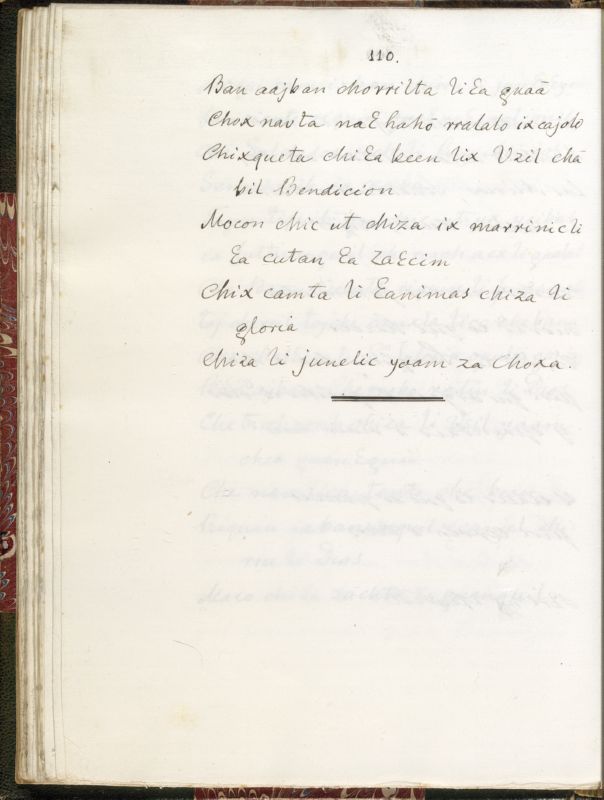 110.
Ban aajban chorrilta li Ɛa guaā
Chox navta naƐ hahō rralalo ix cajolo
Chixqueta chi Ɛa keen lix Uzil chā
bil Bendicion
Mocon chic ut chiza ix marrinic li
Ɛa cutan Ɛa ZaƐcim
Chix camta li Ɛanimas chiza li
gloria
Chiza li junelic yoam za Choxa.